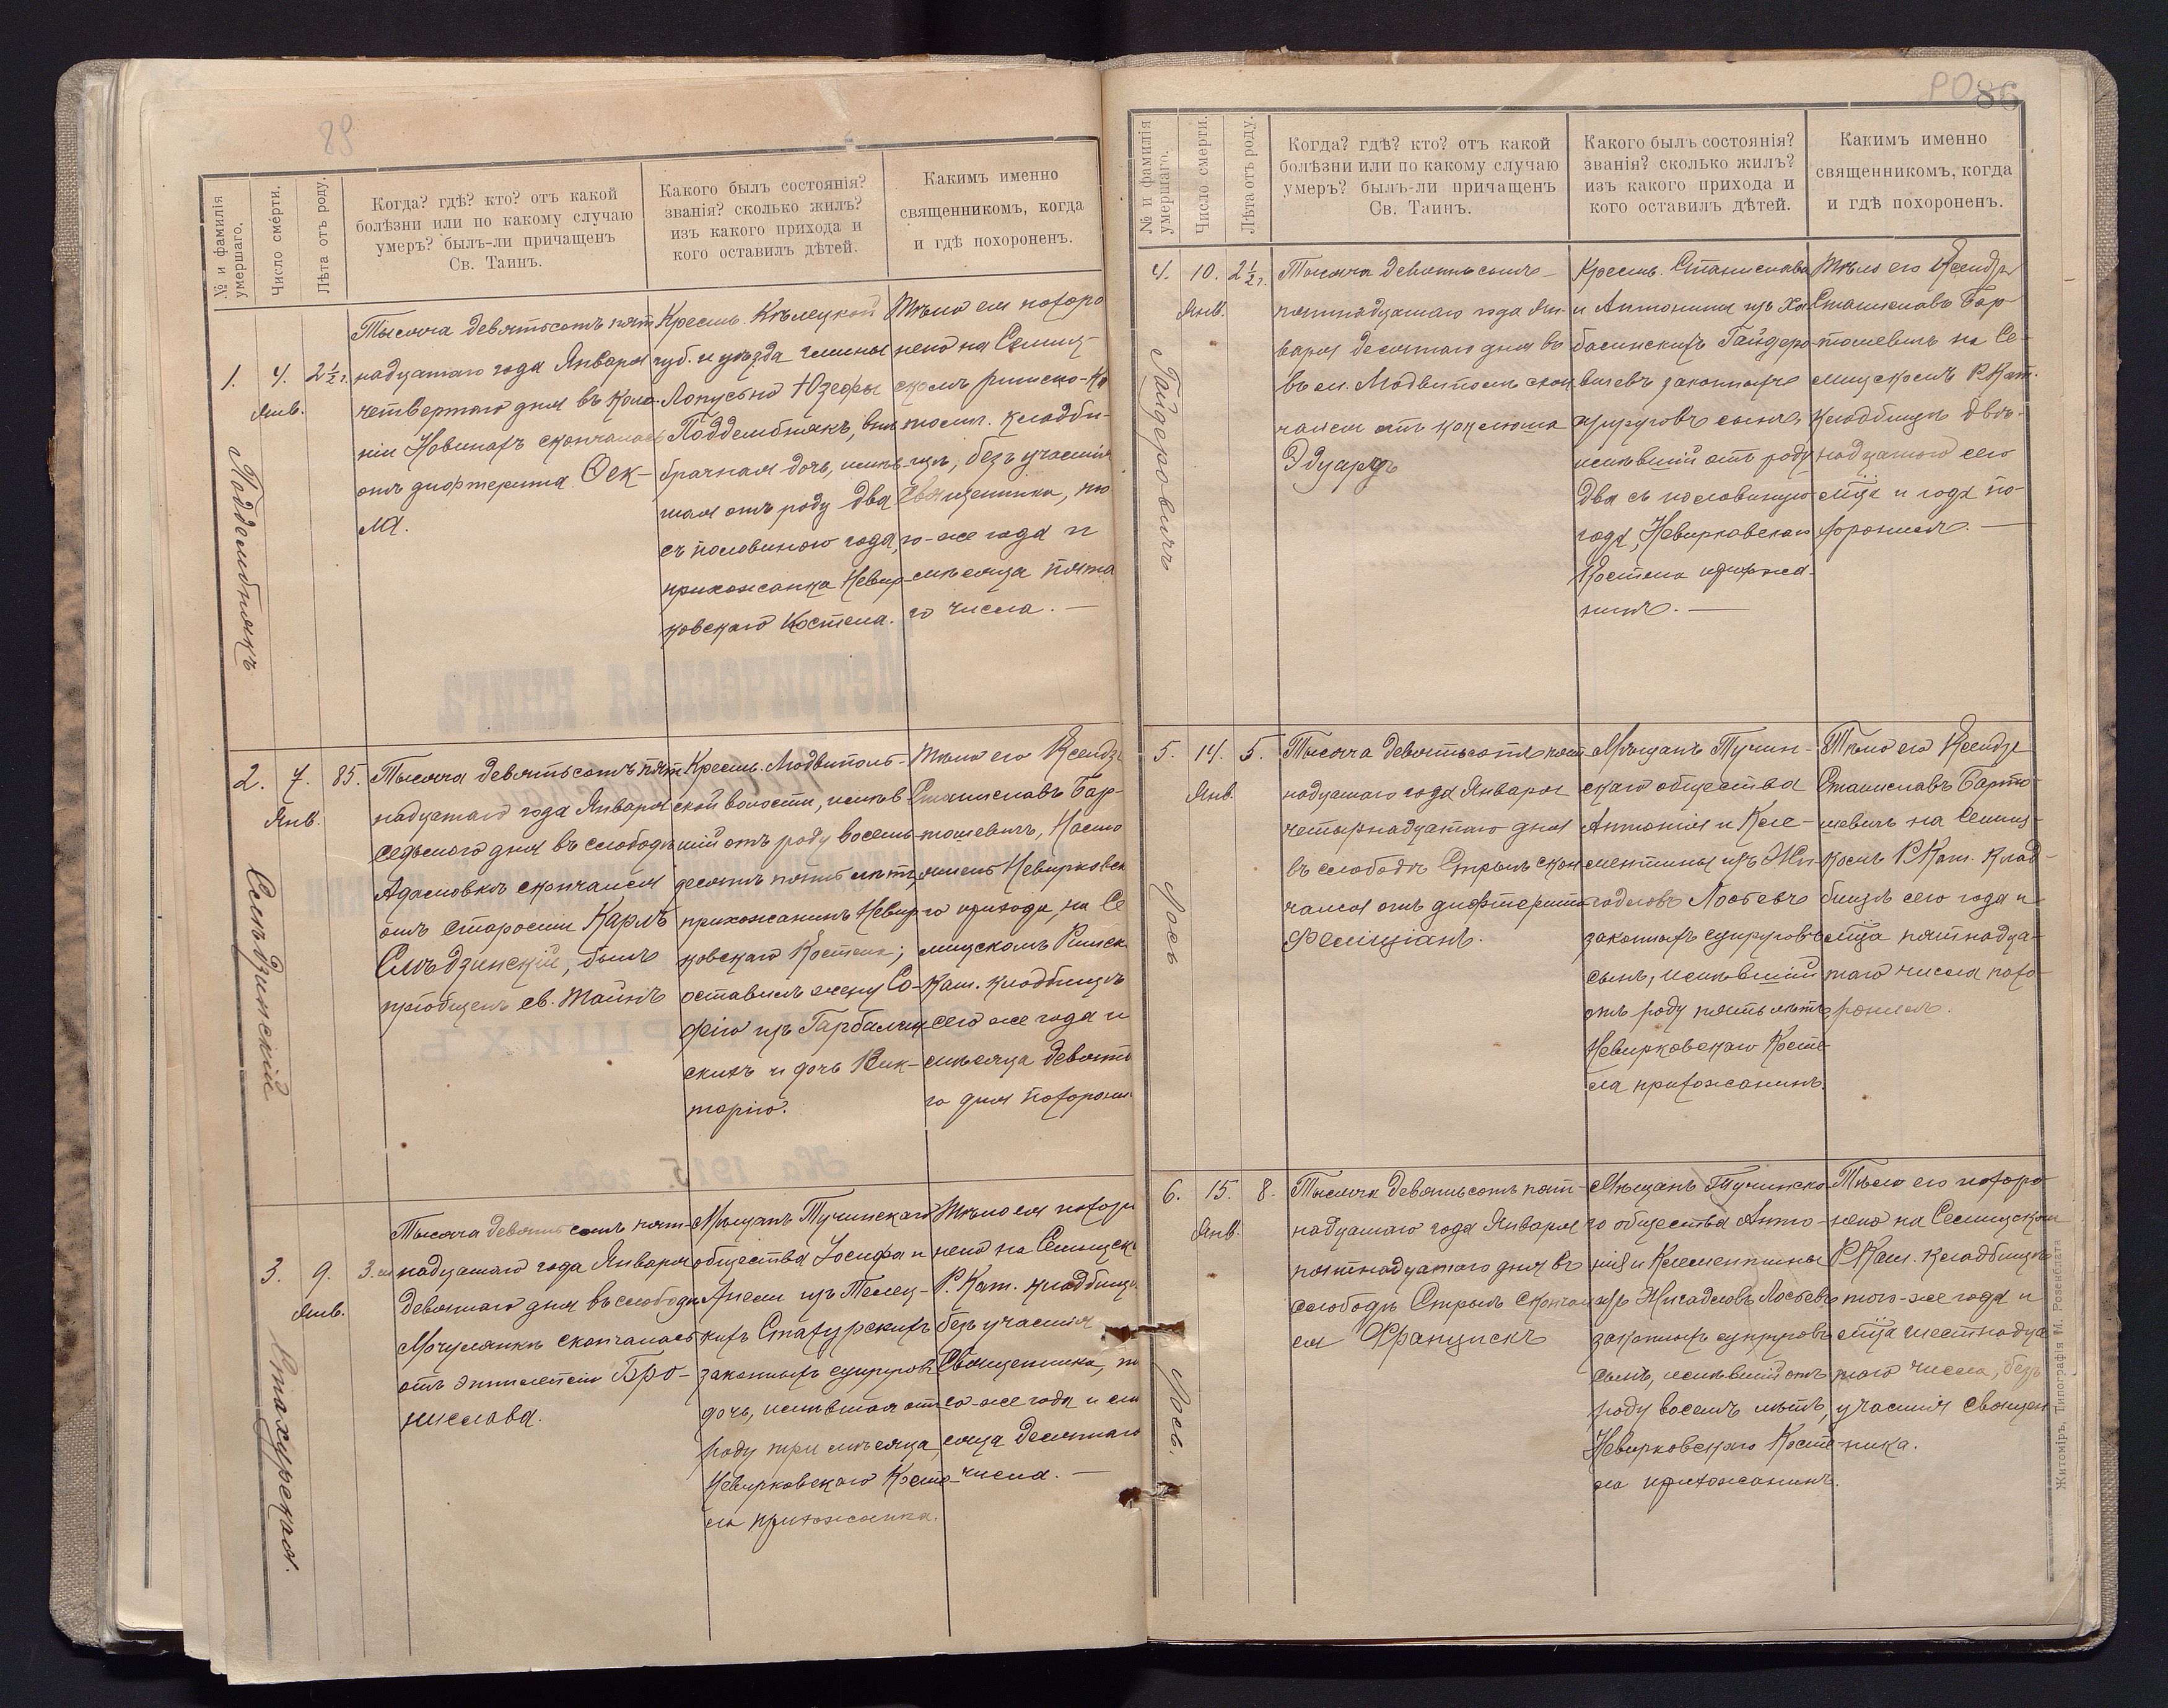 89
№ и фамилія умершаго.
Число смерти.
Лѣта отъ роду.
Когда? гдѣ? кто? отъ какой
болѣзни или по какому случаю
умеръ? былъ-ли причащенъ
Св. Таинъ.
Какого былъ состоянія?
званія? сколько жилъ?
изъ какого прихода и
кого оставилъ дѣтей.
Какимъ именно
священникомъ, когда
и гдѣ похороненъ.
1.
4.
Янв.
2 1/2 г.
Поддембнякъ
Тысяча девятьсотъ пят
надцатаго года Января
четвертаго дня въ коло-
ніи Новинахъ скончалась
отъ дифтерита Фек-
ла.
Крестья. Кѣлецкой
губ. и уѣзда гмины
Лопусьно Юзефы
Поддембнякъ, внѣ
брачная дочь, имѣв-
шая отъ роду два
съ половиною года,
прихожанка Невир-
ковскаго Костела.
Тѣло ея похоро
нено на Селищ-
скомъ римско-ка
толич. кладби-
щѣ, безъ участія
священника, то
го-же года и
мѣсяца пята
го числа. —
2.
7.
Янв.
85.
Слѣдзинскій
Тысяча девятьсотъ пят
надцатаго года Января
седьмого дня въ слободѣ
Адамовкѣ скончался
отъ старости Карлъ
Слѣдзинскій, былъ
пріобщенъ св. Тайнъ
Крестья. Людвиполь-
ской волости, имѣв
шій отъ роду восемь-
десятъ пять лѣтъ,
прихожанинъ Невир
ковскаго Костела;
оставилъ жену Со-
фію изъ Гарбалин
скихъ и дочь Вик-
торію.
Тѣло его Ксендзъ
Станиславъ Бар-
тошевичъ, Насто
ятель Невирковска
го прихода, на Се
лищскомъ Римск
Кат. кладбищѣ
сего же года и
мѣсяца девята
го дня похорони
3.
9.
Янв.
3. м
Стахурская.
Тысяча девятьсотъ пят-
надцатаго года Января
девятаго дня въ слободѣ
Мочулянкѣ скончалась
отъ эпилепсіи Бро-
нислава.
Мѣщанъ Тучинскаго
общества Іосифа и
Анели изъ Телец-
кихъ Стахурскихъ
законныхъ супруговъ
дочь, имѣвшая отъ
роду три мѣсяца,
Невирковскаго Косте-
ла прихожанка.
Тѣло ея похоро
нено на Селищск
Р. Кат. кладбищѣ
безъ участія
Священника, то
го-же года и мѣ
сяца десятаго
числа. —
90
86
№ и фамилія умершаго.
Число смерти.
Лѣта отъ роду.
Когда? гдѣ? кто? отъ какой
болѣзни или по какому случаю
умеръ? былъ-ли причащенъ
Св. Таинъ.
Какого былъ состоянія?
званія? сколько жилъ?
изъ какого прихода и
кого оставилъ дѣтей.
Какимъ именно
священникомъ, когда
и гдѣ похороненъ.
4.
10.
Янв.
2 1/2 г.
Гайдеровичъ
Тысяча девятьсотъ-
пятнадцатаго года Ян-
варя десятаго дня въ
въ м. Людвиполь скон
чался отъ коклюша
Эдуардъ
Крестья. Станислава
и Антонины изъ Ха
басинскихъ Гайдеро-
вичевъ законныхъ
супруговъ сынъ,
имѣвшій отъ роду
два съ половиною
года, Невирковскаго
Костела прихожа-
нинъ. —
Тѣло его Ксендзъ
Станиславъ Бар-
тошевичъ на Се-
лищскомъ Р. Кат.
кладбищѣ двѣ-
надцатаго сего
м-ца и года по-
хоронилъ. —
5.
14.
Янв.
5.
Лось
Тысяча девятьсотъ пят
надцатаго года Января
четырнадцатаго дня
въ слободѣ Стрыль скон
чался отъ дифтерита
Фелиціанъ.
Мѣщанъ Тучин-
скаго общества
Антонія и Кле-
ментины изъ Жи-
гадловъ Лосьевъ
законныхъ супруговъ
сынъ, имѣвшій
отъ роду пять лѣтъ
Невирковскаго Косте
ла прихожанинъ.
Тѣло его Ксендзъ
Станиславъ Барто
шевичъ на Селищ-
комъ Р. Кат. клад-
бищѣ сего года и
м-ца пятнадца-
таго числа похо-
ронилъ.
6.
15.
Янв.
8.
Лось.
Тысяча девятьсотъ пят-
надцатаго года Января
пятнадцатаго дня въ
слободѣ Стрыль скончал
ся Францискъ
Мѣщанъ Тучинска-
го общества Анто-
нія и Клементины
изъ Жигадловъ Лосьевъ
законныхъ супруговъ
сынъ, имѣвшій отъ
роду восемь лѣтъ,
Невирковскаго Косте-
ла прихожанинъ.
Тѣло его похоро
нено на Селищском
Р. Кат. кладбищѣ
того-же года и
м-ца шестнадца
таго числа, безъ
участія священ
ника.
Житоміръ, Типографія М. Розенблата